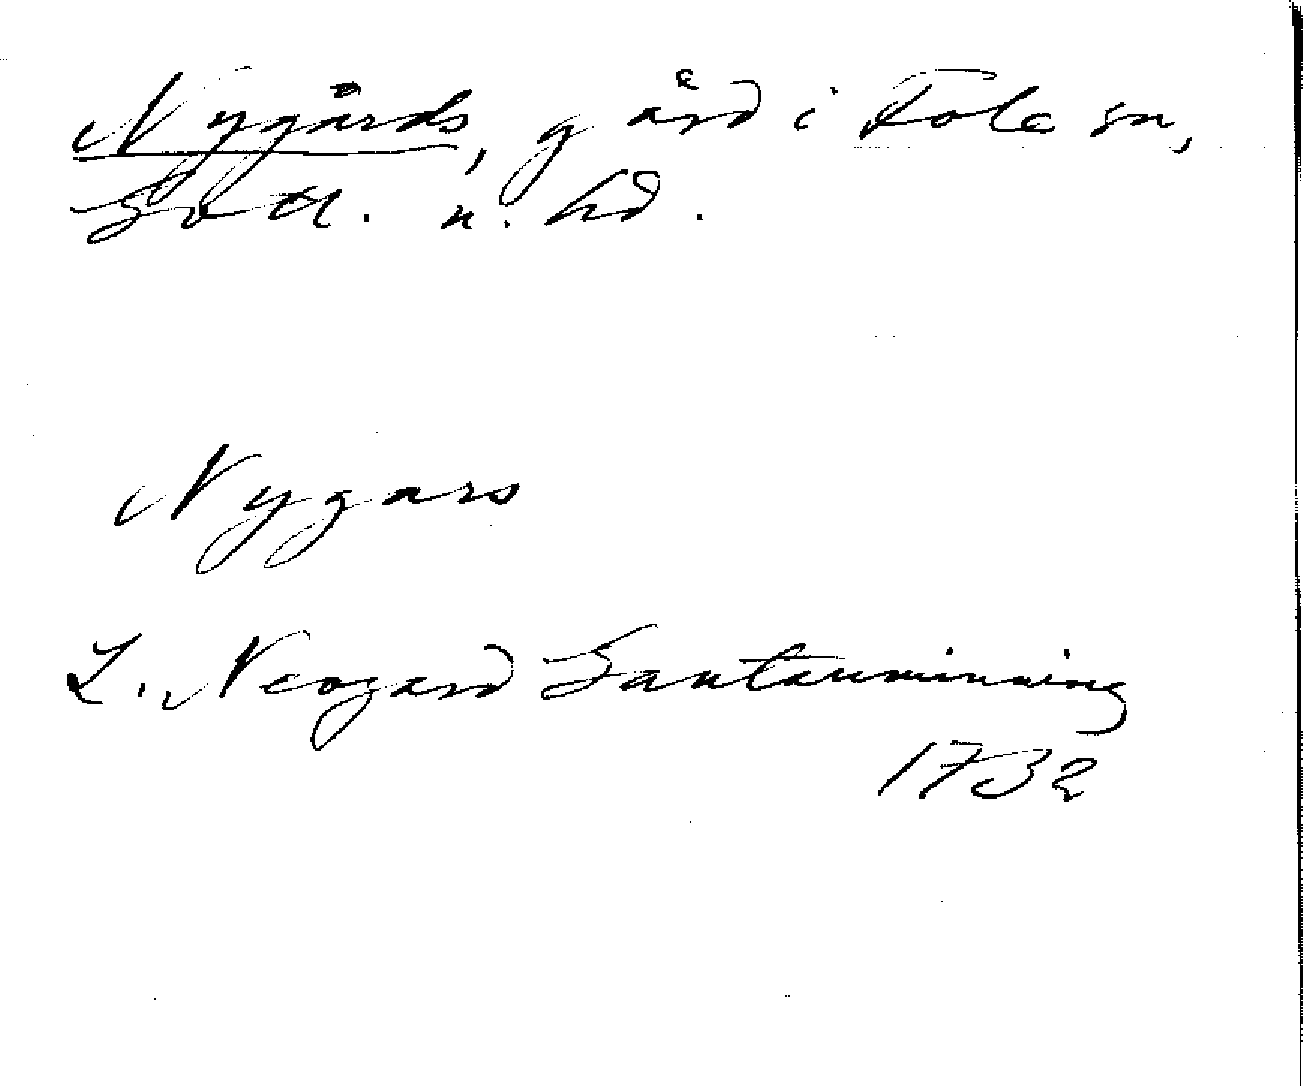 Nygårds, gård i Fole sn,
Gotl. n. hd.
Nygars
L. Neogard Gautauminning
1732